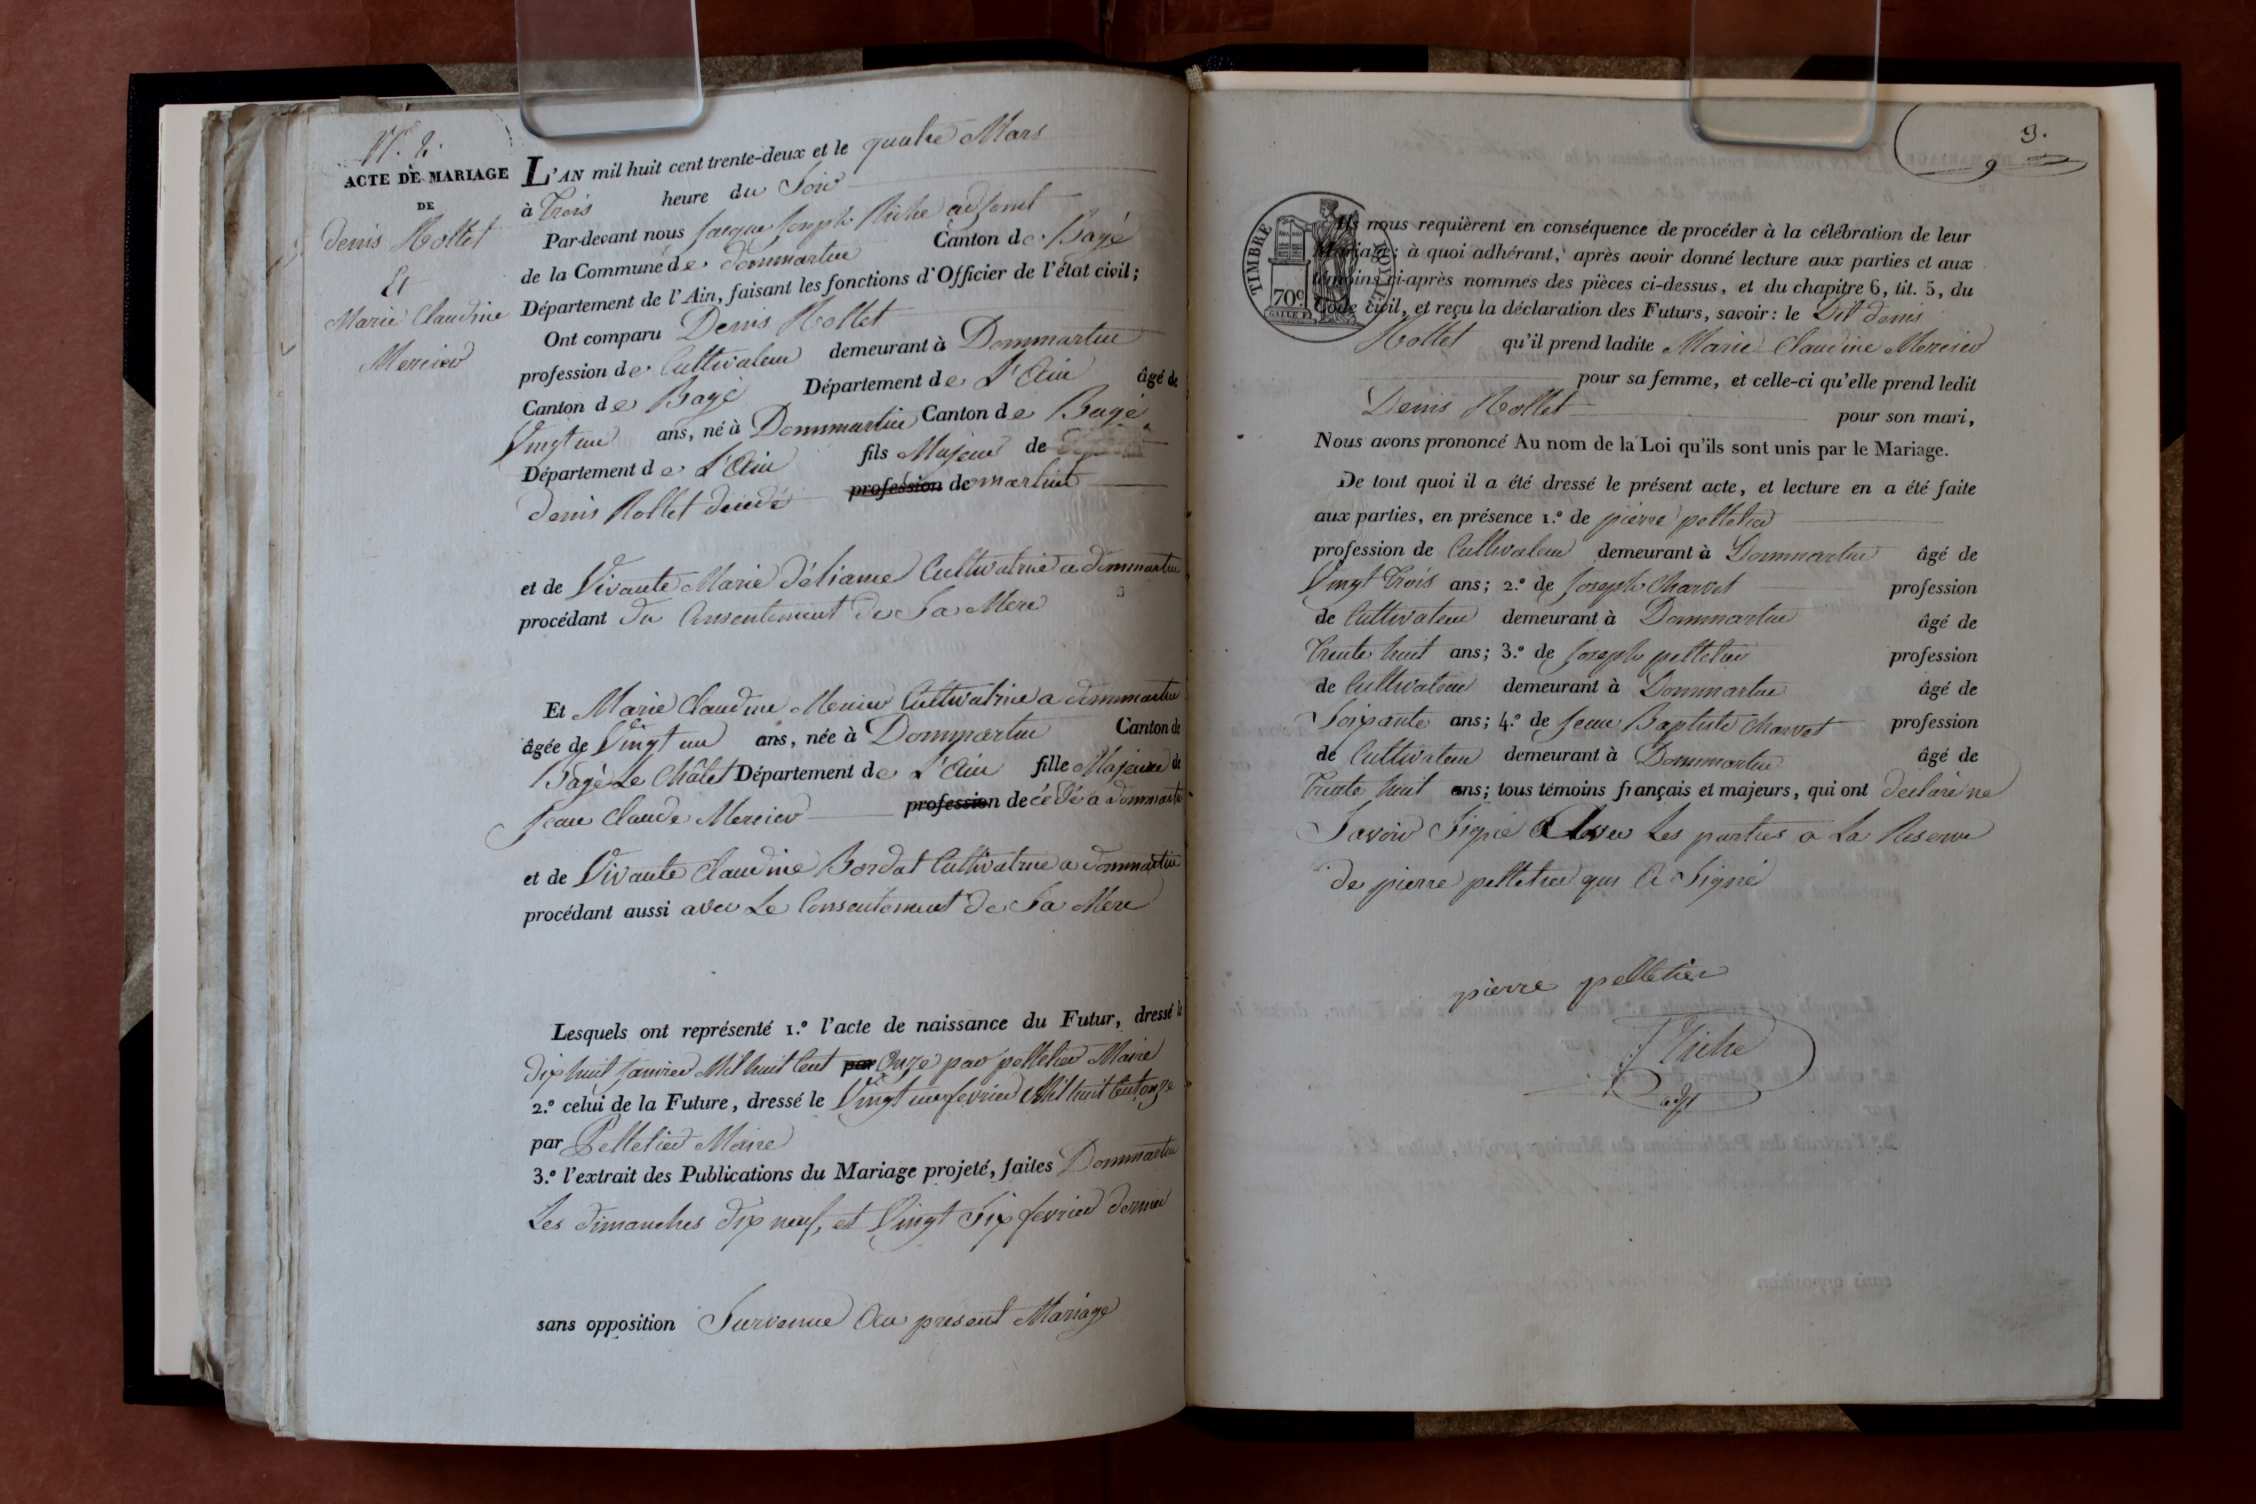 N.° 2.
ACTE DE MARIAGE
DE
Denis Rollet
Et
Marie Claudine
Mercier
L'AN mil huit cent trente-deux et le quatre Mars
à Trois heure du Soir
Par-devant nous Jacque Joseph Riche adjoint
de la Commune de Dommartin Canton de Bagé
Département de l'Ain, faisant les fonctions d'Officier de l'état civil;
Ont comparu Denis Rollet
profession de Cultivateur demeurant à Dommartin
Canton de Bagé Département de L'Ain âgé de
Vingt un ans, né à Dommartin Canton de Bagé
Département de L'Ain fils Majeur de
denis Rollet décédé profession de martin
et de Vivante Marie Déliance Cultivatrice a dommartin
procédant du Consentement de Sa Mere
Et Marie Claudine Mercier Cultivatrice a dommartin
âgée de Vingt un ans, née à Dommartin Canton de
Bagé Le Châtel Département de L'Ain fille Majeure de
Jean Claude Mercier profession decédé a dommartin
et de Vivante Claudine Bordat Cultivatrice a dommartin
procédant aussi avec Le Consentement de Sa Mere
Lesquels ont représenté 1.° l'acte de naissance du Futur, dressé le
dix huit Janvier Mil huit Cent par Onze par pelletier Maire
2.° celui de la Future, dressé le Vingt un fevrier Mil huit Cent onze
par Pelletier Maire
3.° l'extrait des Publications du Mariage projeté, faites Dommartin
Les dimanches dix neuf, et Vingt Six fevrier dernier
sans opposition Survenue Au present Mariage
9.
9
TIMBRE ROYAL
70c
Ils nous requièrent en conséquence de procéder à la célébration de leur
Mariage: à quoi adhérant, après avoir donné lecture aux parties et aux
témoins ci-après nommés des pièces ci-dessus, et du chapitre 6, tit. 5, du
Code civil, et reçu la déclaration des Futurs, savoir: le Dit denis
Rollet qu'il prend ladite Marie Claudine Mercier
pour sa femme, et celle-ci qu'elle prend ledit
Denis Rollet pour son mari,
Nous avons prononcé Au nom de la Loi qu'ils sont unis par le Mariage.
De tout quoi il a été dressé le présent acte, et lecture en a été faite
aux parties, en présence 1.° de pierre pelletier
profession de Cultivateur demeurant à Dommartin âgé de
Vingt Trois ans; 2.° de Joseph Charvet profession
de Cultivateur demeurant à Dommartin âgé de
Trente huit ans; 3.° de Joseph pelletier profession
de Cultivateur demeurant à Dommartin âgé de
Soixante ans; 4.° de Jean Baptiste Charvet profession
de Cultivateur demeurant à Dommartin âgé de
Trente huit ans; tous témoins français et majeurs, qui ont declaré ne
Savoir Signé Avec Les parties a La Reserve
de pierre pelletier qui A Signé
pierre pelletier
J Riche
adjt